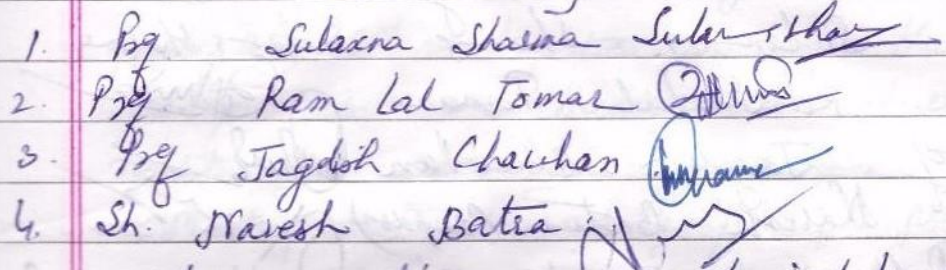 1. Prof Sulaxna Sharma
2. Prof. Ram Lal Tomar
3. Prof Jagdish Chauhan
4. Sh. Naresh Batra